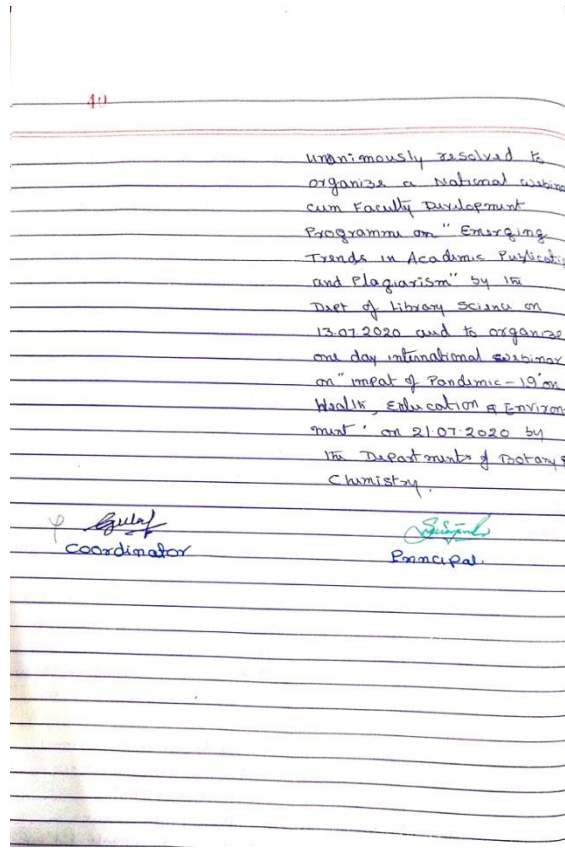 40
unanimously resolved to
organize a National webina
cum Faculty Development
Programme on "Emerging
Trends in Academic Publicati
and Plagiarism" by the
Dept of Library Science on
13.07.2020 and to organize
one day international webinar
on "impat of Pandemic-19 on
Health, Education & Environ-
ment" on 21.07.2020 by
the Departments of Botany &
Chemistry.
Coordinator
Principal.